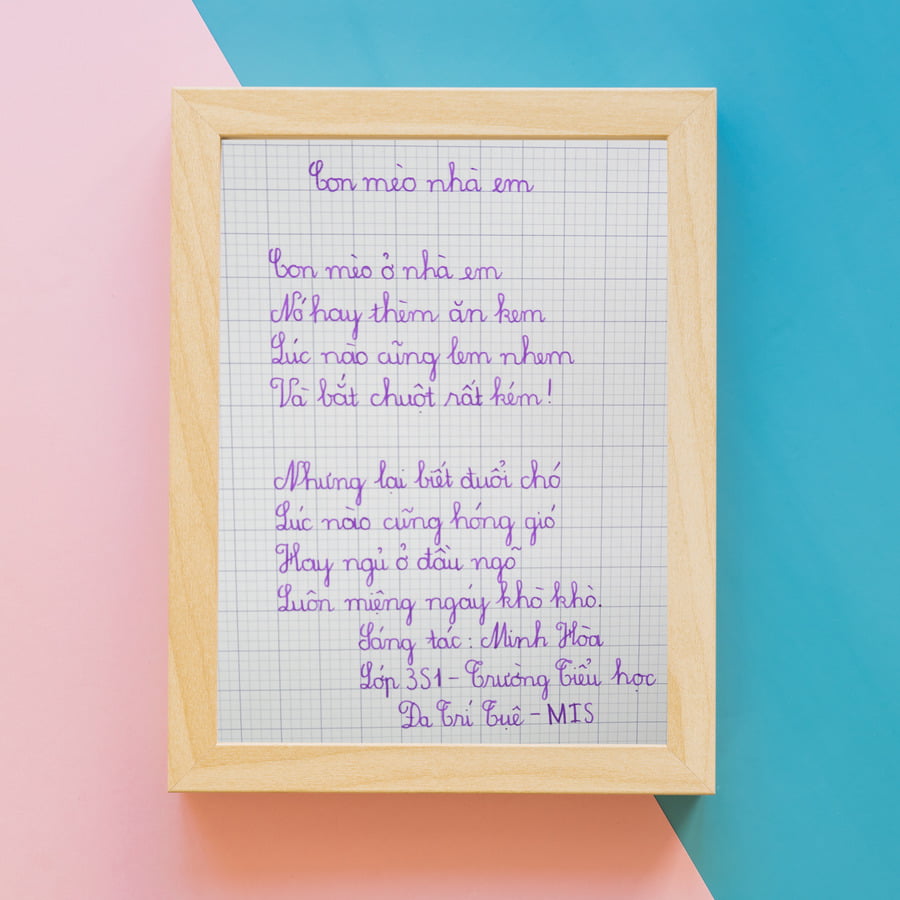 Con mèo nhà em
Con mèo ở nhà em
Nó hay thèm ăn kem
Lúc nào cũng lem nhem
Và bắt chuột rất kém!
Nhưng lại biết đuổi chó
Lúc nào cũng hóng gió
Hay ngủ ở đầu ngõ
Luôn miệng ngáy khò khò.
Sáng tác: Minh Hòa
Lớp 3S1 - Trường Tiểu học
Đa Trí Tuệ - MIS